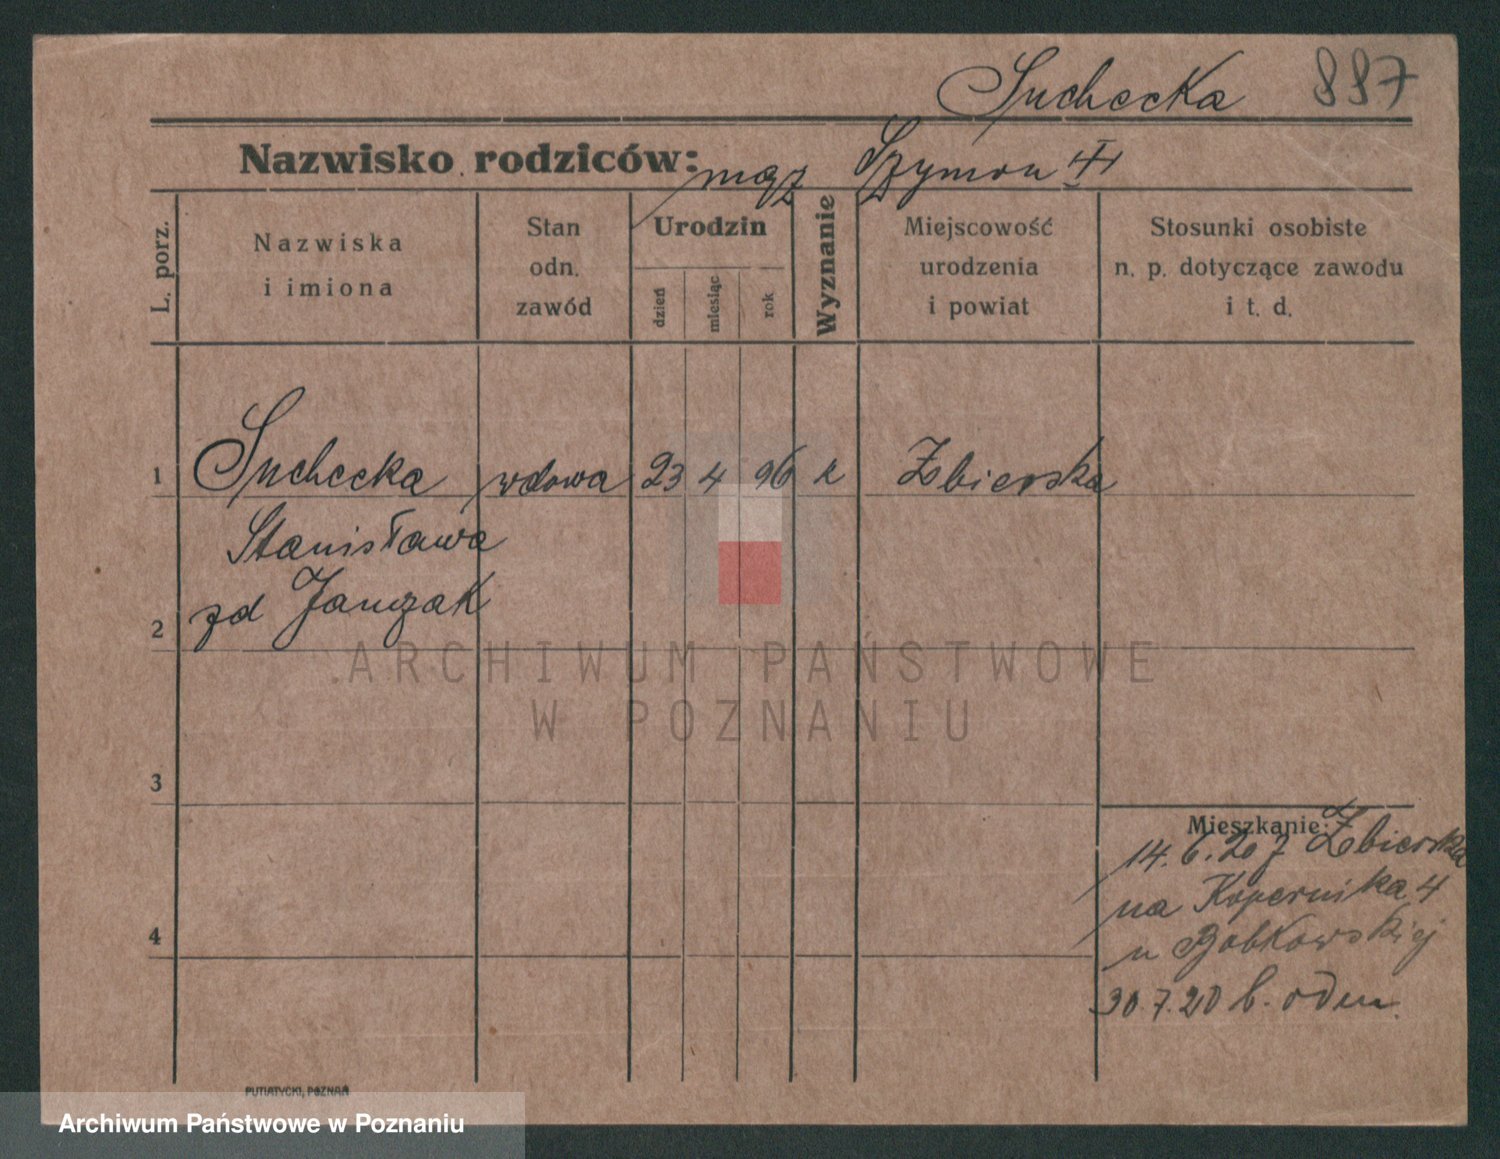 Suchecka 887
Nazwisko rodziców: mąż Szymon
L. porz.
Nazwiska
i imiona
Stan
odn.
zawód
Urodzin
dzień
miesiąc
rok
Wyznanie
Miejscowość
urodzenia
i powiat
Stosunki osobiste
n. p. dotyczące zawodu
i t. d.
1 Suchecka wdowa 23 4 96 k Zbierska
Stanisława
2 zd Janczak
3
Mieszkanie:
14.6.20 z Zbierska
na Kopernika 4
4
u Bobkowskiej
30.7.20 b. odm.
PUTIATYCKI, POZNAŃ
ARCHIWUM PAŃSTWOWE
W POZNANIU
Archiwum Państwowe w Poznaniu